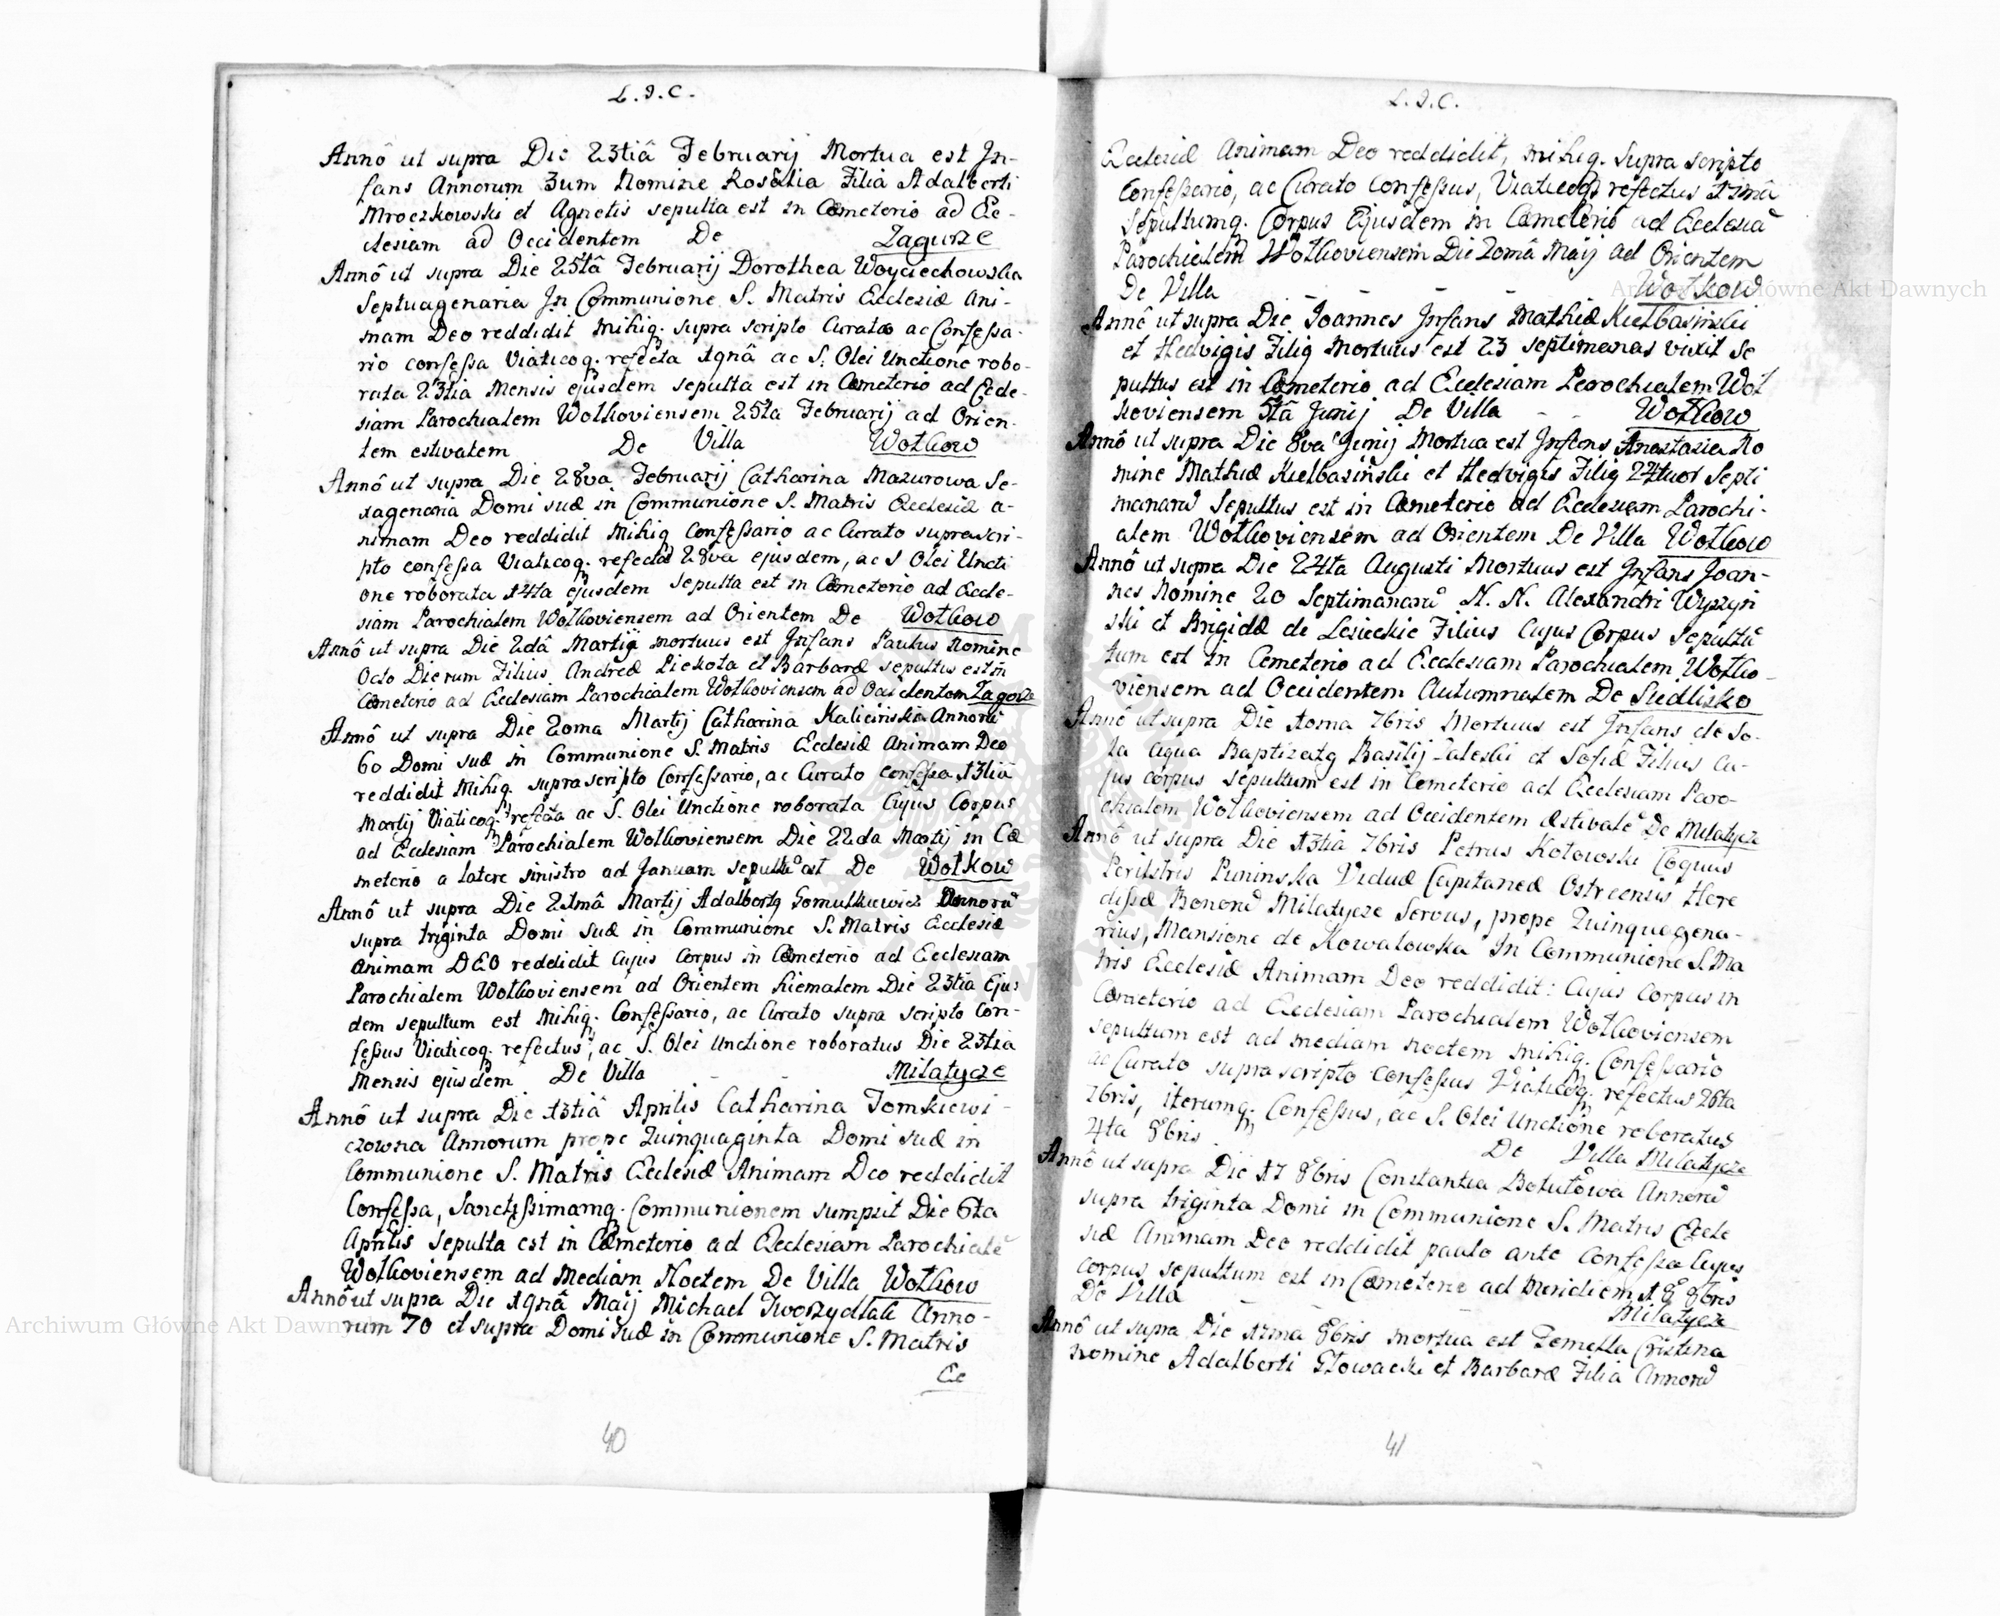 L.I.C.
Annô ut supra Die 23tiâ Februarij Mortua est In-
fans Annorum 3um Nomine Rosalia Filia Adalberti
Mroczkowski et Agnetis sepulta est in Cæmeterio ad Ec-
clesiam ad Occidentem De Zagurze
Annô ut supra Die 25tâ Februarij Dorothea Woyciechowska
Septuagenaria In Communione S. Matris Ecclesiæ Ani-
mam Deo reddidit mihiq. supra scripto Curato ac Confessa-
rio confessa Viaticoq. refecta ac S. Olei Unctione robo-
rata 23tia Mensis ejusdem sepulta est in Cæmeterio ad Eccle-
siam Parochialem Wołkoviensem 25ta Februarij ad Orien-
tem estivalem De Villa Wołkow
Annô ut supra Die 28va Februarij Catharina Mazurowa Se-
xagenaria Domi suæ in Communione S. Matris Ecclesiæ a-
nimam Deo reddidit Mihiq Confessario ac Curato suprascri-
pto confessa Viaticoq. refecta 28va ejusdem, ac S Olei Uncti
one roborata 14ta ejusdem sepulta est in Cæmeterio ad Eccle-
siam Parochialem Wołkoviensem ad Orientem De Wołkow
Annô ut supra Die 2dâ Martij mortuus est Infans Paulus Nomine
Octo Dierum Filius Andreæ Piekota et Barbaræ sepultus est in
Cæmeterio ad Ecclesiam Parochialem Wołkoviensem ad Occidentem Zagorze
Annô ut supra Die 20ma Martij Catharina Kalicińska Annorũ
60 Domi suæ in Communione S. Matris Ecclesiæ Animam Deo
reddidit Mihiq. supra scripto Confessario, ac Curato confessa 13tiâ
Martij Viaticoq. refecta ac S. Olei Unctione roborata Cujus Corpus
ad Ecclesiam Parochialem Wołkoviensem Die 22da Martij in Cæ
meterio a latere sinistro ad Januam sepultũ est De Wołkow
Annô ut supra Die 21mâ Martij Adalbertq Gomułkiewicz Annorũ
supra triginta Domi suæ in Communione S. Matris Ecclesiæ
Animam DEO reddidit Cujus Corpus in Cæmeterio ad Ecclesiam
Parochialem Wołkoviensem ad Orientem hiemalem Die 23tia Ejus
dem sepultum est Mihiq. Confessario, ac Curato supra scripto Con-
fessus Viaticoq. refectus, ac S. Olei Unctione roboratus Die 23tia
Mensis ejusdem De Villa - - Milatycze
Annô ut supra Die 13tiâ Aprilis Catharina Tomkiewi-
czowna Annorum prope Quinquaginta Domi suæ in
Communione S. Matris Ecclesiæ Animam Deo reddidit
Confessa, Sanctissimamq. Communionem sumpsit Die 6ta
Aprilis Sepulta est in Cæmeterio ad Ecclesiam Parochialẽ
Wołkoviensem ad Mediam Noctem De Villa Wołkow
Annô ut supra Die 19nâ Maij Michael Tworzydłak Anno-
rum 70 et supra Domi suæ in Communione S. Matris
Ec
40
L.I.C.
Ecclesiæ Animam Deo reddidit, mihiq. Supra scripto
Confessario, ac Curato confessus, Viaticoq. refectus 17mâ
Sepultumq. Corpus Ejusdem in Cæmeterio ad Ecclesiã
Parochialem Wołkoviensem Die 20mâ Maij ad Orientem
De Villa - - - - Wołkow
Annô ut supra Die Joannes Infans Mathiæ Kiełbasiński
et Hedvigis Filiq Mortuus est 23 septimanas vixit Se
pultus est in Cæmeterio ad Ecclesiam Parochialem Woł
koviensem 5tâ Junij De Villa - - Wołkow
Annô ut supra Die 8va Junij Mortua est Infans Anastasia No
mine Mathiæ Kiełbasiński et Hedvigis Filiq 24tuor Septi
manarũ Sepultus est in Cæmeterio ad Ecclesiam Parochi-
alem Wołkoviensem ad Orientem De Villa Wołkow
Annô ut supra Die 24ta Augusti Mortuus est Infans Joan-
nes Nomine 20 Septimanarũ N. N. Alexandri Wyszyń
ski et Brigidæ de Lesieckie Filius Cujus Corpus Sepultũ
tum est in Cemeterio ad Ecclesiam Parochialem Wołko-
viensem ad Occidentem Autumnalem De Siedlisko
Annô ut supra Die 10ma 7bris Mortuus est Infans de So-
la Aqua Baptizatq Basilij Zaleski et Sofiæ Filius Cu-
jus corpus sepultum est in Cemeterio ad Ecclesiam Paro-
chialem Wołkoviensem ad Occidentem Æstivalẽ De Milatycze
Annô ut supra Die 13tia 7bris Petrus Kotowski Coquus
Perilstris Puninska Viduæ Capitaneæ Ostreensis Here
dissæ Bonorũ Milatycze Servus, prope Quinquagena-
rius, Mansione de Kowalowka In Communione S. Ma
tris Ecclesiæ Animam Deo reddidit: Cujus Corpus in
Cæmeterio ad Ecclesiam Parochialem Wołkoviensem
sepultum est ad mediam noctem mihiq. Confessario
ac Curato supra scripto confessus Viaticoq. refectus 26ta
7bris, iterumq. Confessus, ac S. Olei Unctione roboratus
4ta 8bris De Villa Milatycze
Annô ut supra Die 17 8bris Constantia Botułowa Annorũ
supra triginta Domi in Communione S. Matris Eccle
siæ Animam Deo reddidit paulo ante Confessa Cujus
corpus sepultum est in Cæmeterio ad Meridiem 18 8bris
De Villa - - - - Milatycze
Annô ut supra Die 17ma 8bris mortua est Femella Cristina
nomine Adalberti Głowacki et Barbaræ Filia Annorũ
41
Archiwum Główne Akt Dawnych
Archiwum Główne Akt Dawnych